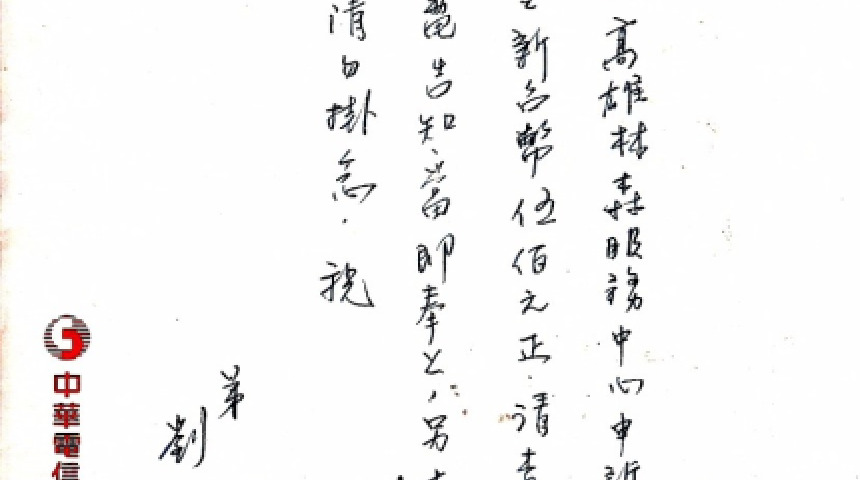 高雄林森服務中心申
新台幣伍佰元正.請
電告知,當即奉上,另
請勿掛念.祝
弟
劉
中華電信